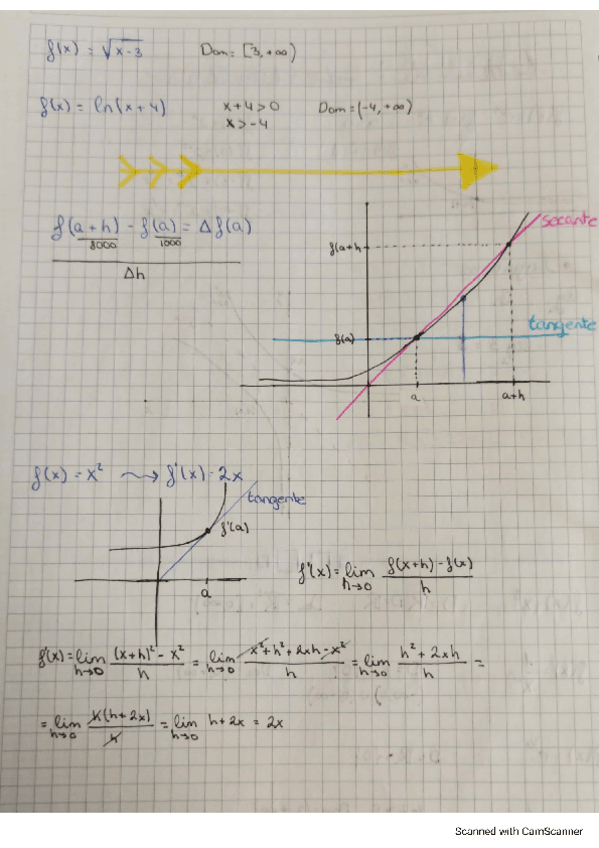 f(x) = √x-3 Dom = [3, +∞)
f(x) = ln(x+4) x+4>0 Dom = (-4, +∞)
x>-4
f(a+h) - f(a) = Δf(a)
8000 1000
Δh
secante
f(a+h)
tangente
f(a)
a a+h
f(x) = x² ⤳ f'(x) = 2x
tangente
f'(a)
a
f'(x) = lim h→0 f(x+h) - f(x) / h
f'(x) = lim h→0 (x+h)² - x² / h = lim h→0 x² + h² + 2xh - x² / h = lim h→0 h² + 2xh / h =
= lim h→0 h(h+2x) / h = lim h→0 h+2x = 2x
Scanned with CamScanner